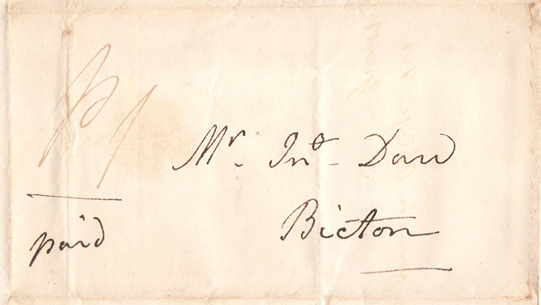 P 1
Mr. Jno. Daw
Bicton
paid